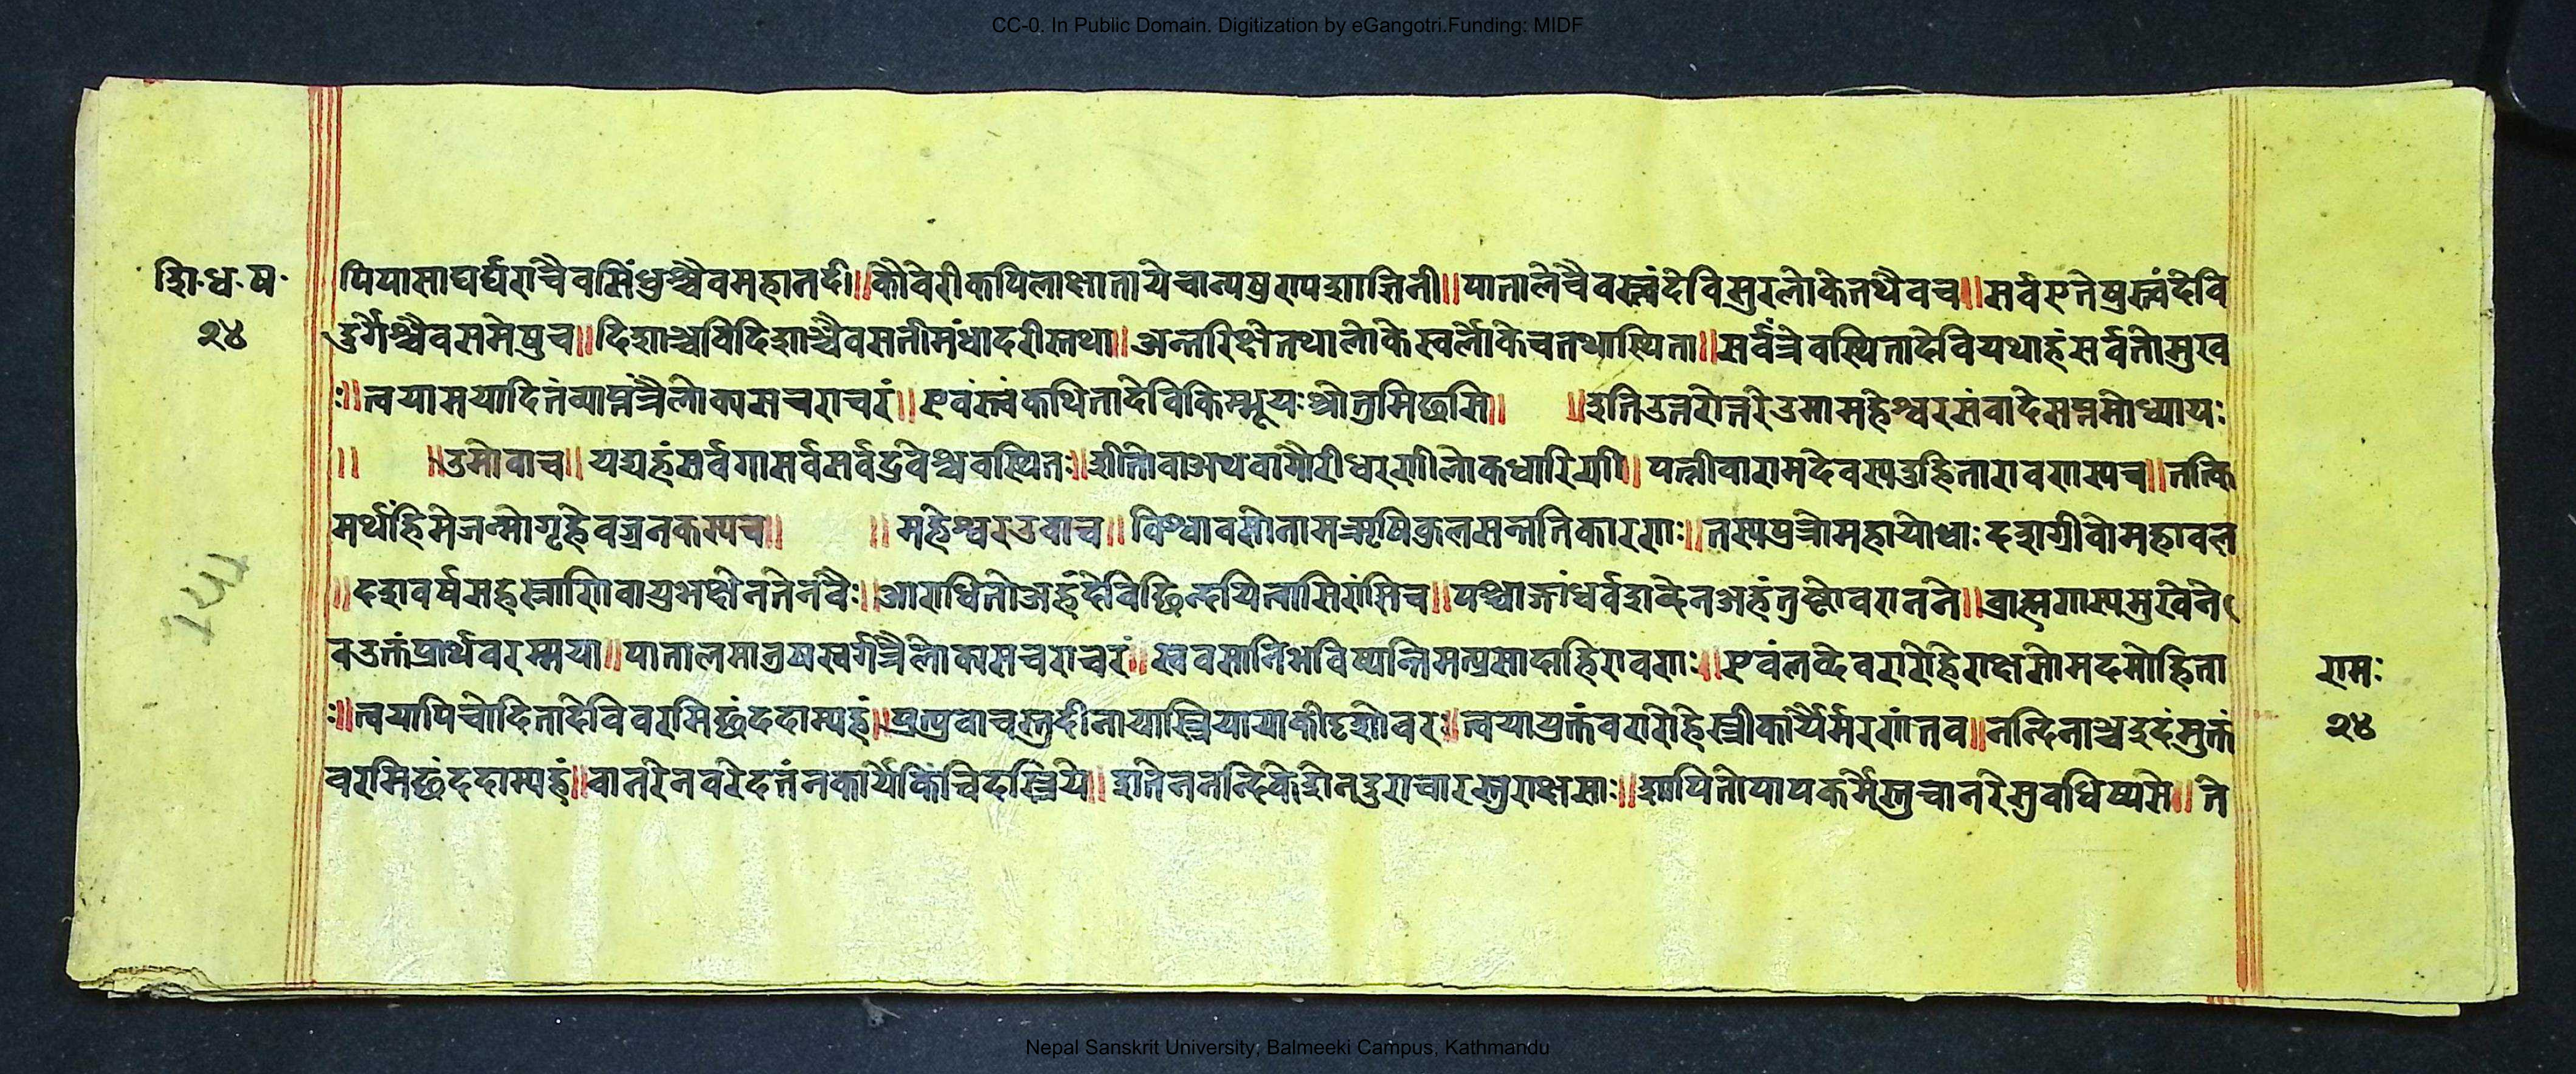 CC-0. In Public Domain. Digitization by eGangotri.Funding: MIDF
शि·ध·ष·
२४
पिपासाघर्घराचैवसिंधुश्चैवमहानदी॥कौवेरीकपिलाक्षातायेचान्यषुरापशाजिनी॥पातालेचैवस्त्वंदेविसुरलोकेतथैवच॥सर्वएतेषुस्त्वंदेवि
दुर्गेश्चैवसमेषुच॥दिशाञ्चविदिशाञ्चैवसतीमंधोदरीस्तथा॥अन्तरिक्षेतथालोकेस्वर्लोकेचतथास्थिता॥सर्वत्रेवस्थितादेवियथाहंसर्वतोमुख
ः॥त्वयामयादितंव्याप्तंत्रैलोक्यसचराचरं॥एवंस्त्वंकथितादेविकिम्भूयःश्रोतुमिछसि॥ ॥इतिउत्तरोत्तरेउमामहेश्वरसंवादेसप्तमोध्यायः
॥ ॥उमोवाच॥यद्यहंसर्वगासर्वसर्वद्रवेश्चवस्थितः॥शीतोवाअथवागौरीधरणीलोकधारिणी॥पत्नीवारामदेवस्यदुहितारावणस्यच॥तत्कि
मर्थंहिमेजन्मोगृहेवजनकस्यच॥ ॥महेश्वरउवाच॥विश्वावसोनामऋषिकुलसन्ततिकारणः॥तस्यपुत्रोमहायोधाःदशग्रीवोमहावल
॥दशवर्षसहस्त्राणिवायुभक्षेनतेनवैः॥आराधितोअहंदेविछिन्दयित्वासिरांसिच॥पश्चाङ्गांधर्वशब्देनअहंतुष्टोवरानने॥ब्राह्मणस्यमुखेने
वउक्तंप्रार्थवरम्मया॥पातालमानुषस्वर्गत्रैलोक्यसचराचरं॥स्ववसानिभविष्यन्तिमत्प्रसादाहिरावणः॥एवंलब्देवरारेहिराक्षसोमदमोहिता
ः॥त्वयापिचोदितादेविवरमिछंददाम्यहं॥प्रत्युवाचस्तुदीनायास्त्रियायाकीदृशोवरः॥त्वयायुक्तंवरारोहेस्त्रीकार्यैर्मरणंतव॥नन्दिनाश्चइदंमुक्तं
वरमिछंददाम्यहं॥वानरेनवरेदत्तंनकार्यंकिंचिदस्त्रिये॥शतेननन्दिकेशेनदुराचारस्तुराक्षसाः॥शापितोपापकर्मेस्तुचानरेसुवधिष्यसे॥ते
रामः
२४
Nepal Sanskrit University, Balmeeki Campus, Kathmandu